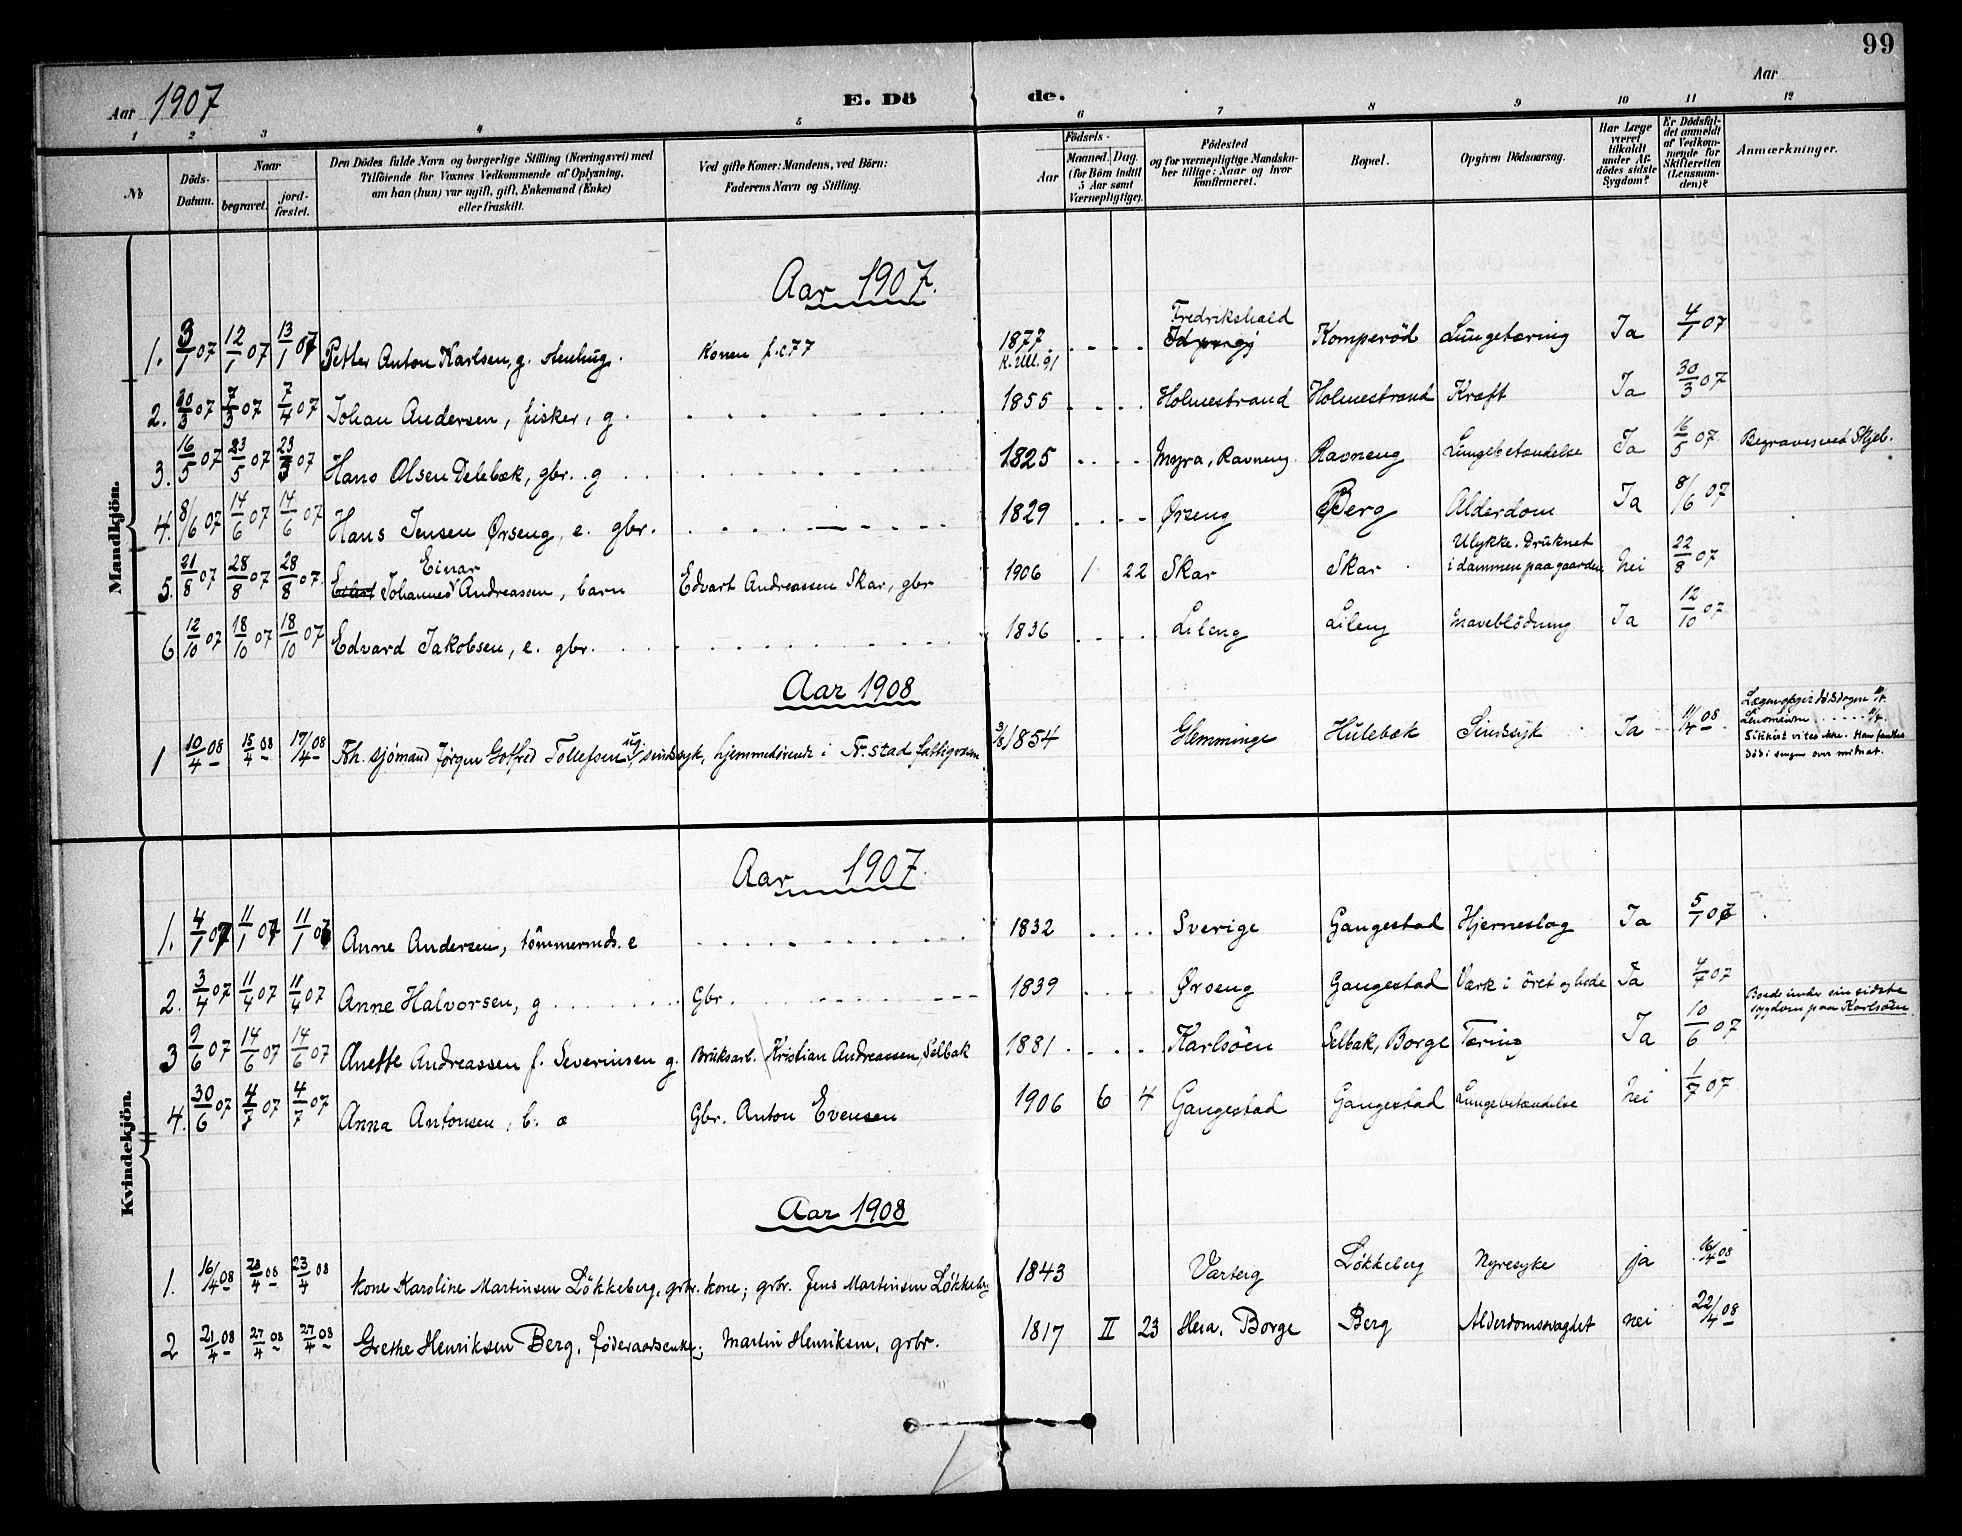 99
Aar 1907 E. Dö de. Aar
1 2 3 4 5 6 7 8 9 10 11 12
№ Döds-Datum. Naar begravet. jordfæstet. Den Dödes fulde Navn og borgerlige Stilling (Næringsvei) med Tilföiende for Voxnes Vedkommende af Oplysning, om han (hun) var ugift, gift, Enkemand (Enke) eller fraskilt. Ved gifte Koner: Mandens, ved Börn: Faderens Navn og Stilling. Födsels- Aar Maaned. Dag. (for Börn indtil 5 Aar samt Værnepligtige). Födested og for værnepligtige Mandskaber tillige: Naar og hvor konfirmeret. Bopæl. Opgiven Dödsaarsag. Har Læge været tilkaldt under Afdödes sidste Sygdom? Er Dödsfaldet anmeldt af Vedkommende for Skifteretten (Lensmanden)? Anmærkninger.
Mandkjön.
Aar 1907.
1. 3/1 07 12/1 07 13/1 07 Petter Anton Karlsen, g. stenhug. Konen f. c. 77 1877 Fredrikshald Komperød Lungetæring Ja 4/1 07
2. 30/3 07 7/3 07 7/4 07 Johan Andersen, fisker, g. 1855 Holmestrand Holmestrand Kræft Ja 30/3 07
3. 16/5 07 23/5 07 23/5 07 Hans Olsen Delebæk, gbr. g 1825 Myra, Ravneng Ravneng Lungebetændelse Ja 16/5 07. Begraves ved Skjeb.
4. 8/6 07 14/6 07 14/6 07 Hans Jensen Ørseng, e. gbr. 1829 Ørseng Berg Alderdom Ja 8/6 07
Einar Ulykke. Druknet
5. 21/8 07 28/8 07 28/8 07. Johannes Andreassen, barn Edvart Andreassen Skar, gbr 1906 1 22 Skar Skar i dammen paa gaarden nei 22/8 07
6 12/10 07 18/10 07 18/10 07 Edvard Jakobsen, e. gbr. 1836 Lileng Lileng Maveblödning Ja 12/10 07
Aar 1908
1 10/4 08 15/4 08 17/4 08 Fh. sjømand Jørgen Gotfred Tollefsen ug. sindssyk, hjemmehørende i Fr.stad fattigvæsen 3/8 1854 Glemminge Hulebæk Sindssyk Ja 11/4 08 Lægen opgir dødsdagen
Lensmanden
Sikkert vites ikke. Han fandtes
død i sengen over midnat.
Kvindekjön.
Aar 1907.
1. 4/1 07 11/1 07 11/1 07 Anne Andersen, tömmermds. e 1832 Sverige Gangestad Hjerneslag Ja 5/1 07
2. 3/4 07 11/4 07 11/4 07 Anne Halvorsen, g Gbr. 1839 Ørseng Gangestad Værk i öret og hode Ja 4/4 07
Boede under sin sidste
sygdom paa Karlsöen
3 9/6 07 14/6 07 14/6 07 Anette Andreassen f. Severinsen g. Bruksarb. Kristian Andreassen, Selbak 1881 Karlsöen Selbak, Borge Tæring Ja 10/6 07
4. 30/6 07 4/7 07 4/7 07 Anna Antonsen, b. æ Gbr. Anton Evensen 1906 6 4 Gangestad Gangestad Lungebetændelse nei 1/7 07
Aar 1908
1. 16/4 08 23/4 08 23/4 08 Kone Karoline Martinsen Løkkeberg, grbr. kone; grbr. Jens Martinsen Løkkeb. 1843 Varterg Løkkeberg Nyresyke ja 16/4 08
2 21/4 08 27/4 08 27/4 08 Grethe Henriksen Berg, føderaadsenke; Martin Henriksen, grbr. 1817 II 23 Heia, Borge Berg Alderdomssvaghet nei 22/4 08